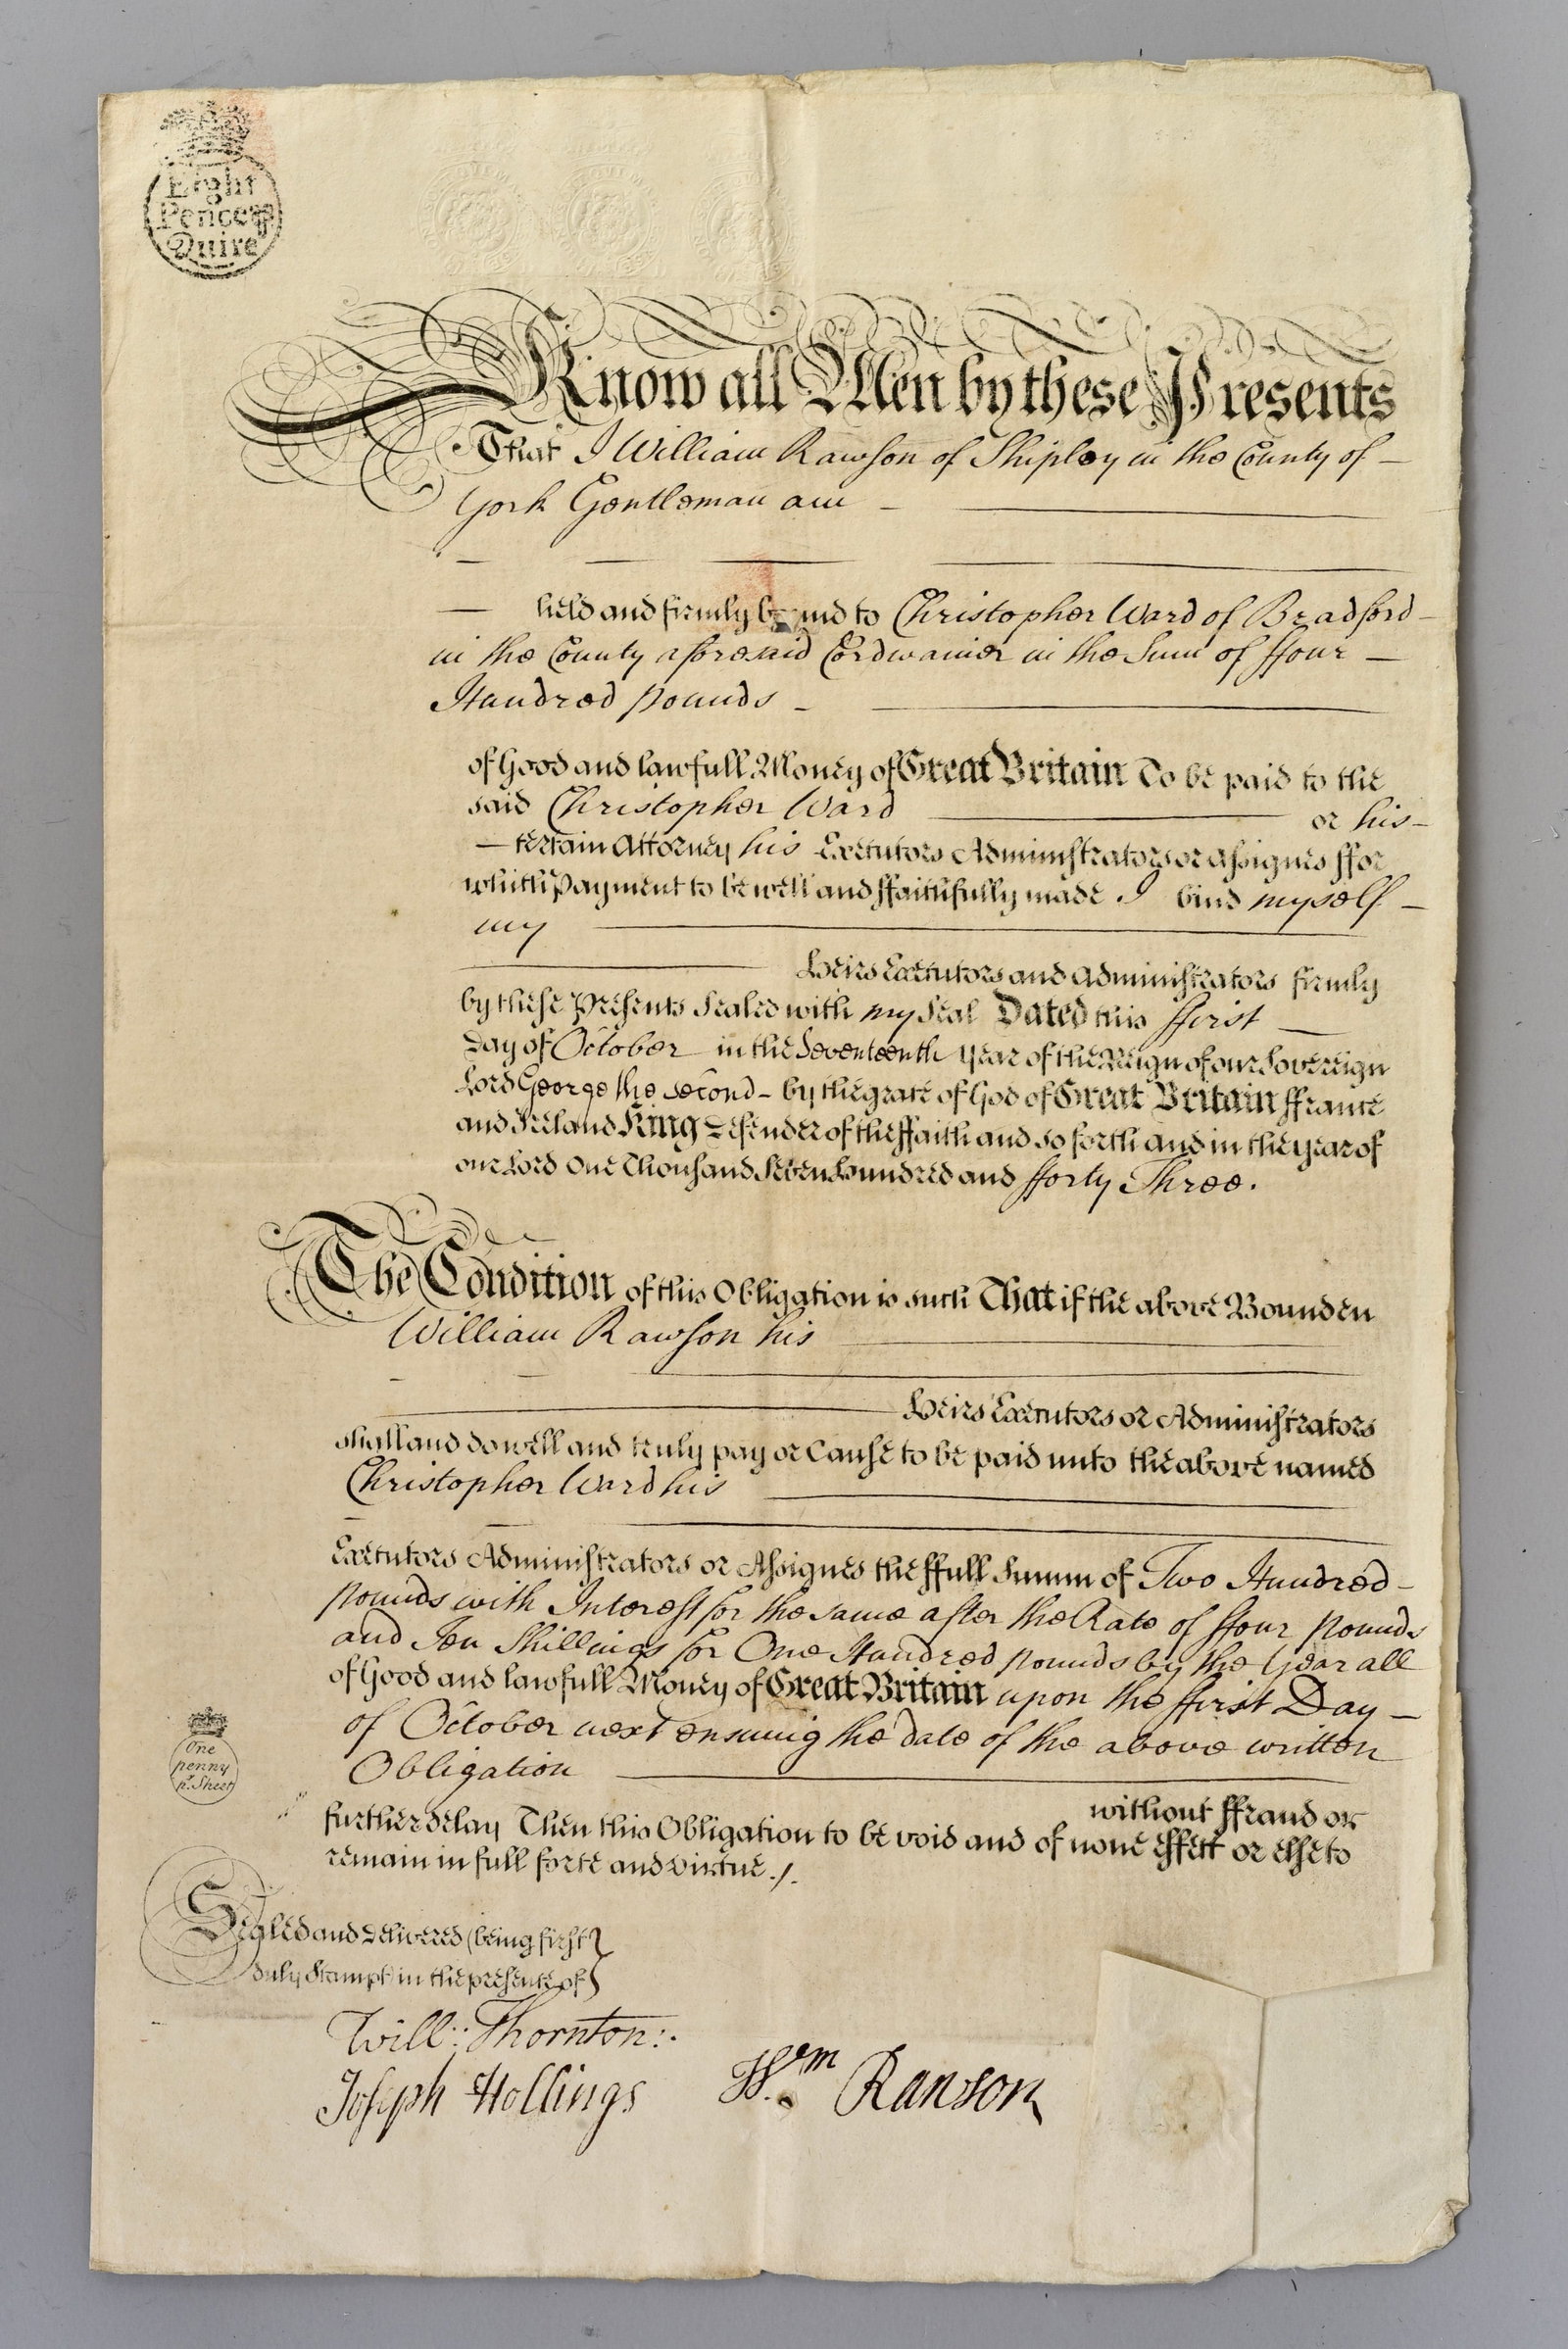 Eight
Pence pr
Quire
Know all Men by these Presents
That I William Rawson of Shipley in the County of
York Gentleman am
held and firmly bound to Christopher Ward of Bradford
in the County aforesaid Cordwainer in the Sum of ffour
Hundred pounds
of Good and lawfull Money of Great Britain To be paid to the
said Christopher Ward or his
certain Attorney his Executors Administrators or Assignes ffor
which Payment to be well and ffaithfully made I bind myself
my
Heirs Executors and Administrators firmly
by these Presents Sealed with my Seal Dated this ffirst
Day of October in the Seventeenth Year of the Reign of our Sovereign
Lord George the second by the grace of God of Great Britain ffrance
and Ireland King Defender of the ffaith and so forth And in the year of
our Lord One Thousand Seven Hundred and fforty Three.
The Condition of this Obligation is such That if the above Bounden
William Rawson his
Heirs Executors or Administrators
shall and do well and truly pay or Cause to be paid unto the above named
Christopher Ward his
Executors Administrators or Assignes the ffull Summ of Two Hundred
pounds with Interest for the same after the Rate of ffour pounds
and Ten Shillings for One Hundred pounds by the Year all
of Good and lawfull Money of Great Britain upon the ffirst Day
of October next ensuing the date of the above written
Obligation
One
penny
pr. Sheet
without ffraud or
further delay Then this Obligation to be void and of none effect or else to
remain in full force and virtue ./.
Sealed and Delivered (being first
duly Stampt) in the presence of
Will:: Thornton:.
Joseph Hollings
Wm Rawson